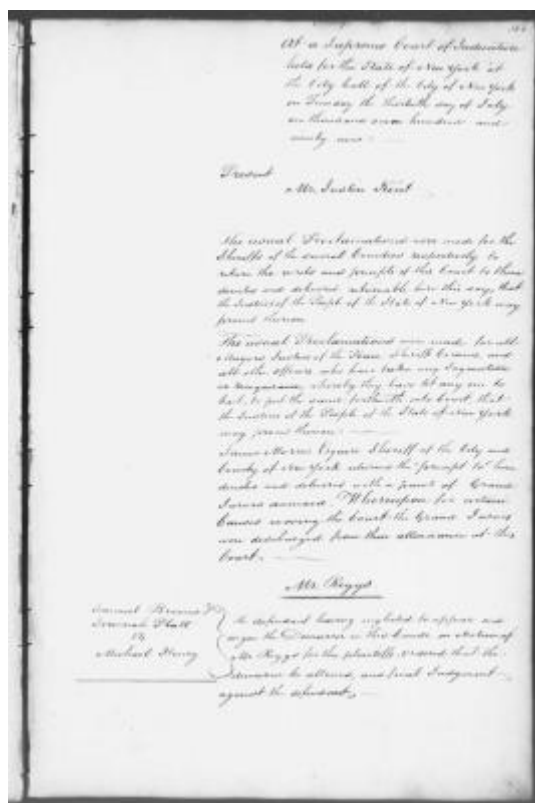 At a Supreme Court of Judicature
held for the State of New York at
the City hall of the City of New York
on Tuesday the thirtieth day of July
one thousand seven hundred and
ninety nine
Present
Mr. Justice Kent
The usual Proclamations were made for the
Sheriffs of the several Counties respectively to
return the writs and precepts of this Court to them
directed and delivered returnable here this day, that
the Justices of the People of the State of New York may
proceed thereon
The usual Proclamations were made for all
Mayors Justices of the Peace Sheriffs Coroners and
all other officers who have taken any Inquisitions
or Recognizances, whereby they have let any one to
bail, to put the same forthwith into Court, that
the Justices of the People of the State of New York
may proceed thereon
James Morris Esquire Sheriff of the City and
County of New York returned the precept to him
directed and delivered with a pannel of Grand
Jurors annexed. Whereupon for certain
Causes moving the Court the Grand Jurors
were discharged from their attendance at this
Court.
Mr. Riggs
Samuel
Jeremiah Platt
vs
Michael Henry
The defendant having neglected to appear and
argue the Demurrer in this Cause on Motion of
Mr. Riggs for the plaintiffs ordered that the
demurrer be allowed, and final Judgment
against the defendant